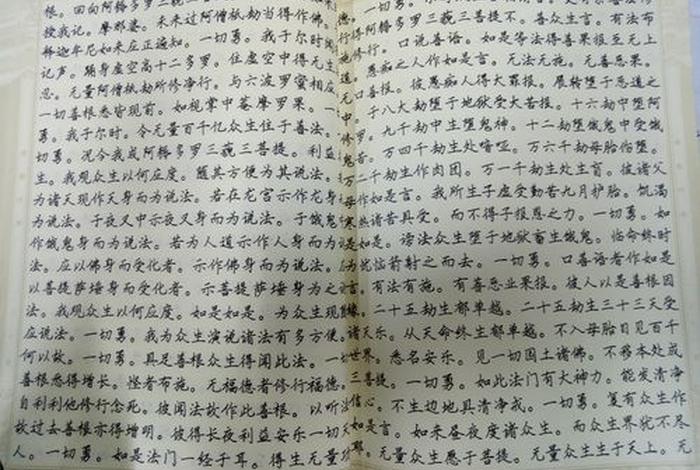 根。回向阿耨多罗三藐三
授我记。摩那婆。未来过阿僧祇劫当得作佛。
释迦牟尼如来应正遍知。一切勇。我于尔时闻
记声。踊身虚空高十二多罗。住虚空中得无生
忍。无量阿僧祇劫所修净行。与六波罗蜜相应
一切善根悉皆现前。如视掌中菴摩罗果。一
勇。我于尔时。令无量百千亿众生住于善法。
切勇。况今我成阿耨多罗三藐三菩提。利益
生。我观众生以何应度。随其方便为其说法。
为诸天现作天身而为说法。若在龙宫示作龙身
为说法。于夜叉中示夜叉身而为说法。于饿鬼
作饿鬼身而为说法。若为人道示作人身而为
法。应以佛身而受化者。示作佛身而为说法。
以菩提萨埵身而受化者。示菩提萨埵身为之
法。我观众生以何应度。如是如是。为众生现
应说法。一切勇。我为众生演说诸法有多方便。
何以故。一切勇。具足善根众生得闻此法。一切
善根悉得增长。悭者布施。无福德者修行福德。
自利利他修行念死。彼闻法故作此善根。以听法
故过去善根亦得增明。彼得长夜利益安乐一切天
人。一切勇。如是法门一经于耳。得生无量
德。一切勇。
阿耨多罗三藐三菩提不。善众生言。有法布
修行。口说善语。如是等法得善果报至无上
愚痴之人作如是言。无法无施。无善恶果。
口善报。彼愚痴人得大罪报。展转堕于恶道之
于八大劫堕于地狱受大苦报。十六劫中堕阿
罗。九千劫中生堕鬼神。十二劫饿鬼中受饿
苦。万四千劫生处喑哑。万六千劫母胎伤堕。
二千劫生作肉团。万一千劫生处生盲。彼诸父
作如是言。我所生子虚受勤苦九月护胎。饥渴
热诸苦具受。而不得子报恩之力。一切勇。如
如是。谤法众生堕于地狱畜生饿鬼。临命终时
忧恼箭射之而去。一切勇。口善语者作如是
言。有法有施。有善恶业果报。彼人以是善根因
缘。二十五劫生郁单越。二十五劫生三十三天受
诸天乐。从天命终生郁单越。不入母胎目见百千
世界。悉名安乐。见一切国土诸佛。不移本处成
三菩提。一切勇。如此法门有大神力。能发清净
信心。不生边地具清净戒。一切勇。复有众生作
如是言。如来昼夜度诸众生。而众生界犹不尽
耶。无量众生愿于菩提。无量众生生于天上。无